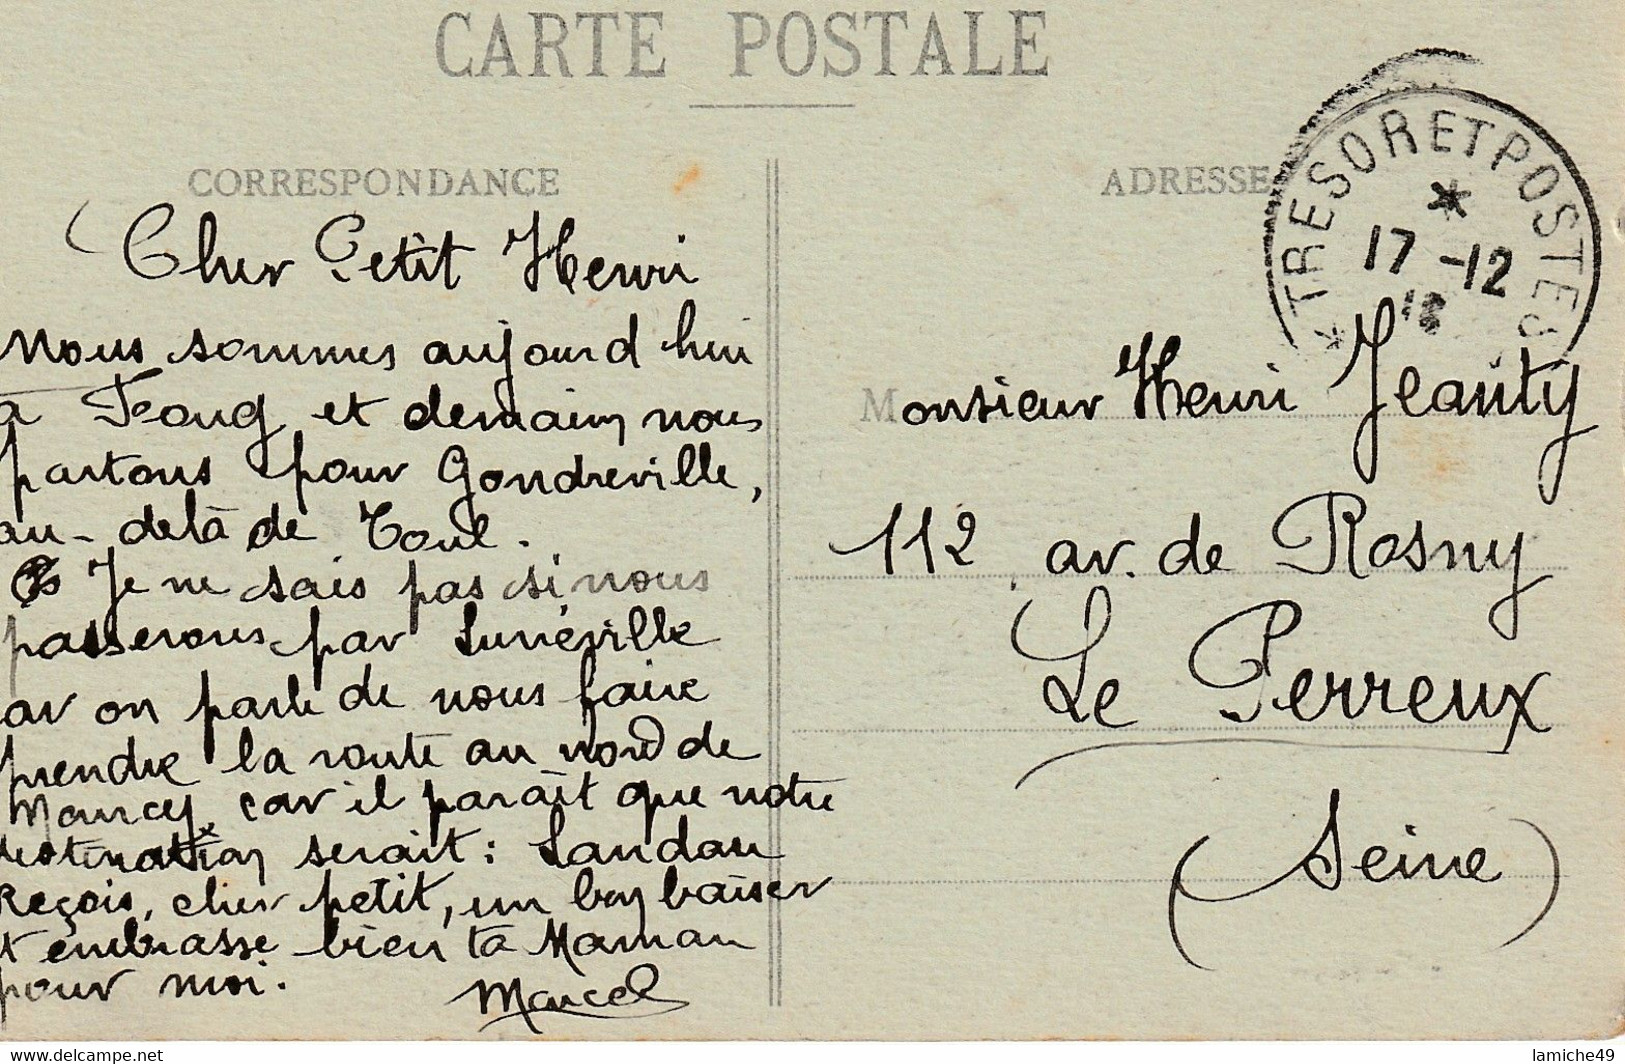 CARTE POSTALE
CORRESPONDANCE
Cher Petit Henri
Nous sommes aujourd hui
à Foug et demain nous
partons pour Gondreville,
au-delà de Toul.
Je ne sais pas si nous
passerons par Lunéville
ar on parle de nous faire
prendre la route au nord de
Nancy, car il paraît que notre
destination serait : Landau
Reçois, cher petit, un bon baiser
t embrasse bien ta Maman
pour moi.
Marcel
ADRESSE
TRESOR ET POSTES
17 -12
18
Monsieur Henri Jeanty
112 av. de Rosny
Le Perreux
(Seine)
www.delcampe.net
lamiche49